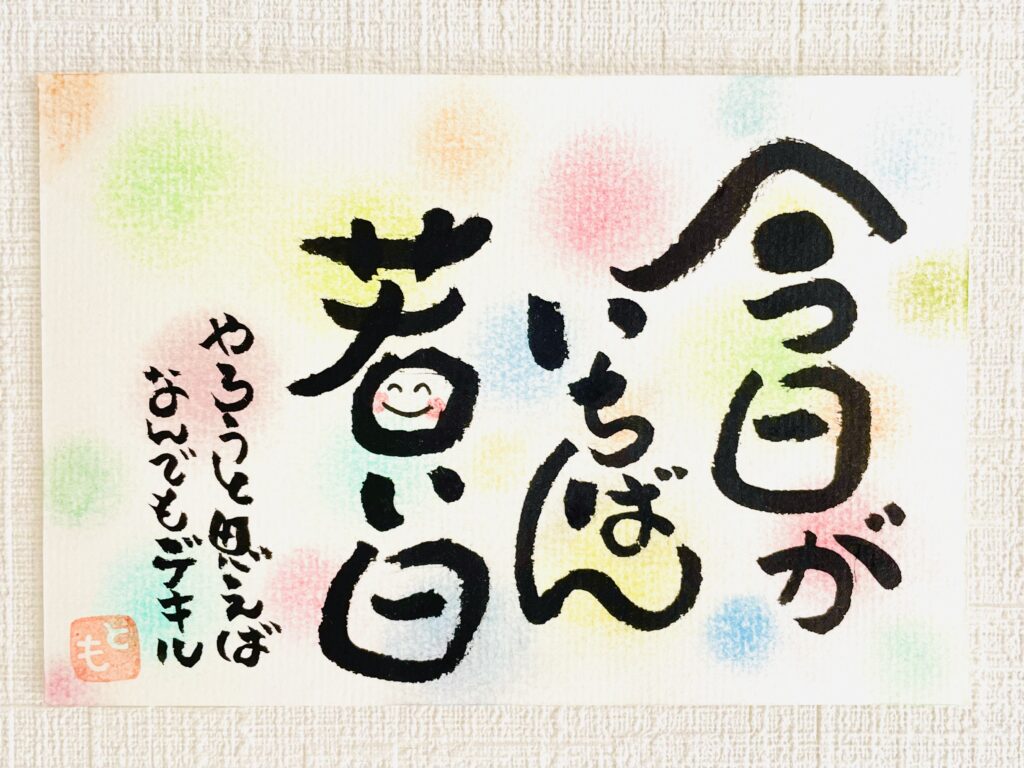 今日が
いちばん
若い日
やろうと思えば
なんでもデキル
とも